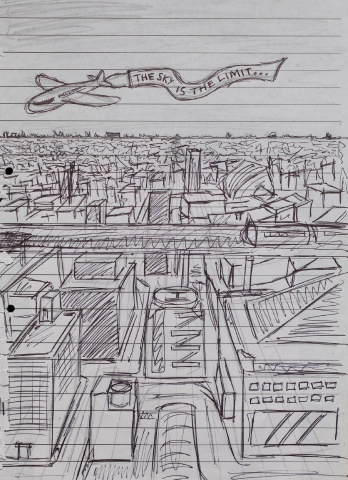 THE SKY IS THE LIMIT...